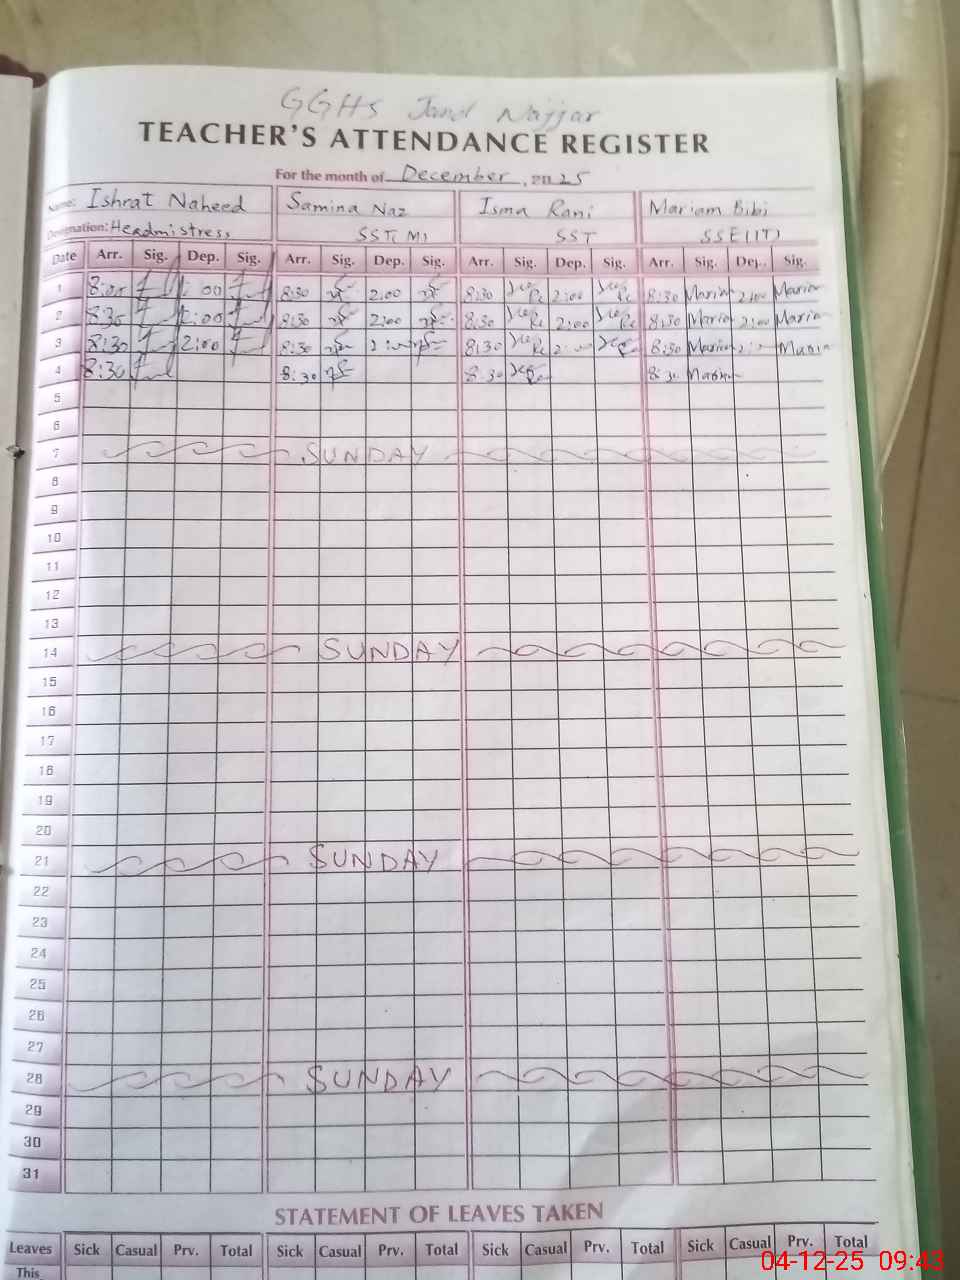 GGHS Jand Najjar
TEACHER'S ATTENDANCE REGISTER
For the month of December, 2025
Name: Ishrat Naheed Samina Naz Isma Rani Mariam Bibi
Designation: Headmistress SST(M) SST SSE(IT)
Date Arr. Sig. Dep. Sig. Arr. Sig. Dep. Sig. Arr. Sig. Dep. Sig. Arr. Sig. Dep. Sig.
1 8:30 2:00 8:30 2:00 8:30 Maria 2:00 Maria
2 8:30 2:00 8:30 2:00 8:30 2:00 8:30 Maria 2:00 Maria
3 8:30 2:00 8:30 8:30 8:30 Maria Maria
4 8:30 8:30 8:30 8:30 Maria
5
6
7 SUNDAY
8
9
10
11
12
13
14 SUNDAY
15
16
17
18
19
20
21 SUNDAY
22
23
24
25
26
27
28 SUNDAY
29
30
31
STATEMENT OF LEAVES TAKEN
Leaves Sick Casual Prv. Total Sick Casual Prv. Total Sick Casual Prv. Total Sick Casual Prv. Total
This
04-12-25 09:43